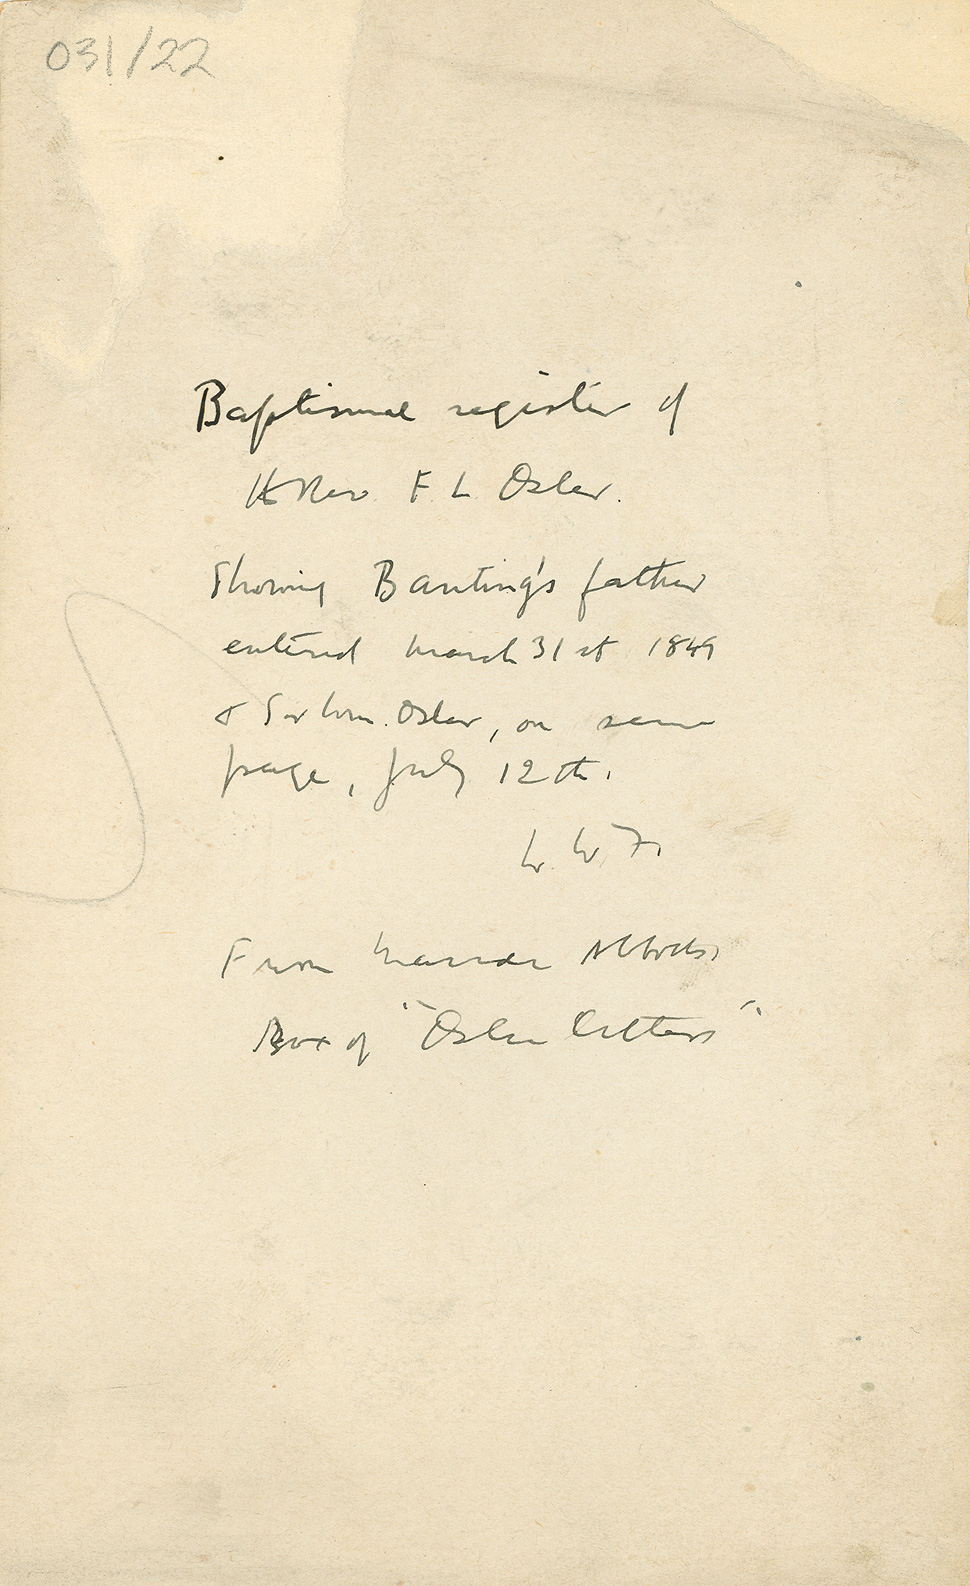 031/22
Baptismal register of
Rev. F L Osler.
Showing Banting's father
entered March 31st 1849
& Sir Wm. Osler, on same
page, July 12th.
W. W. F.
From Maude Abbott's
Box of "Osler Letters"